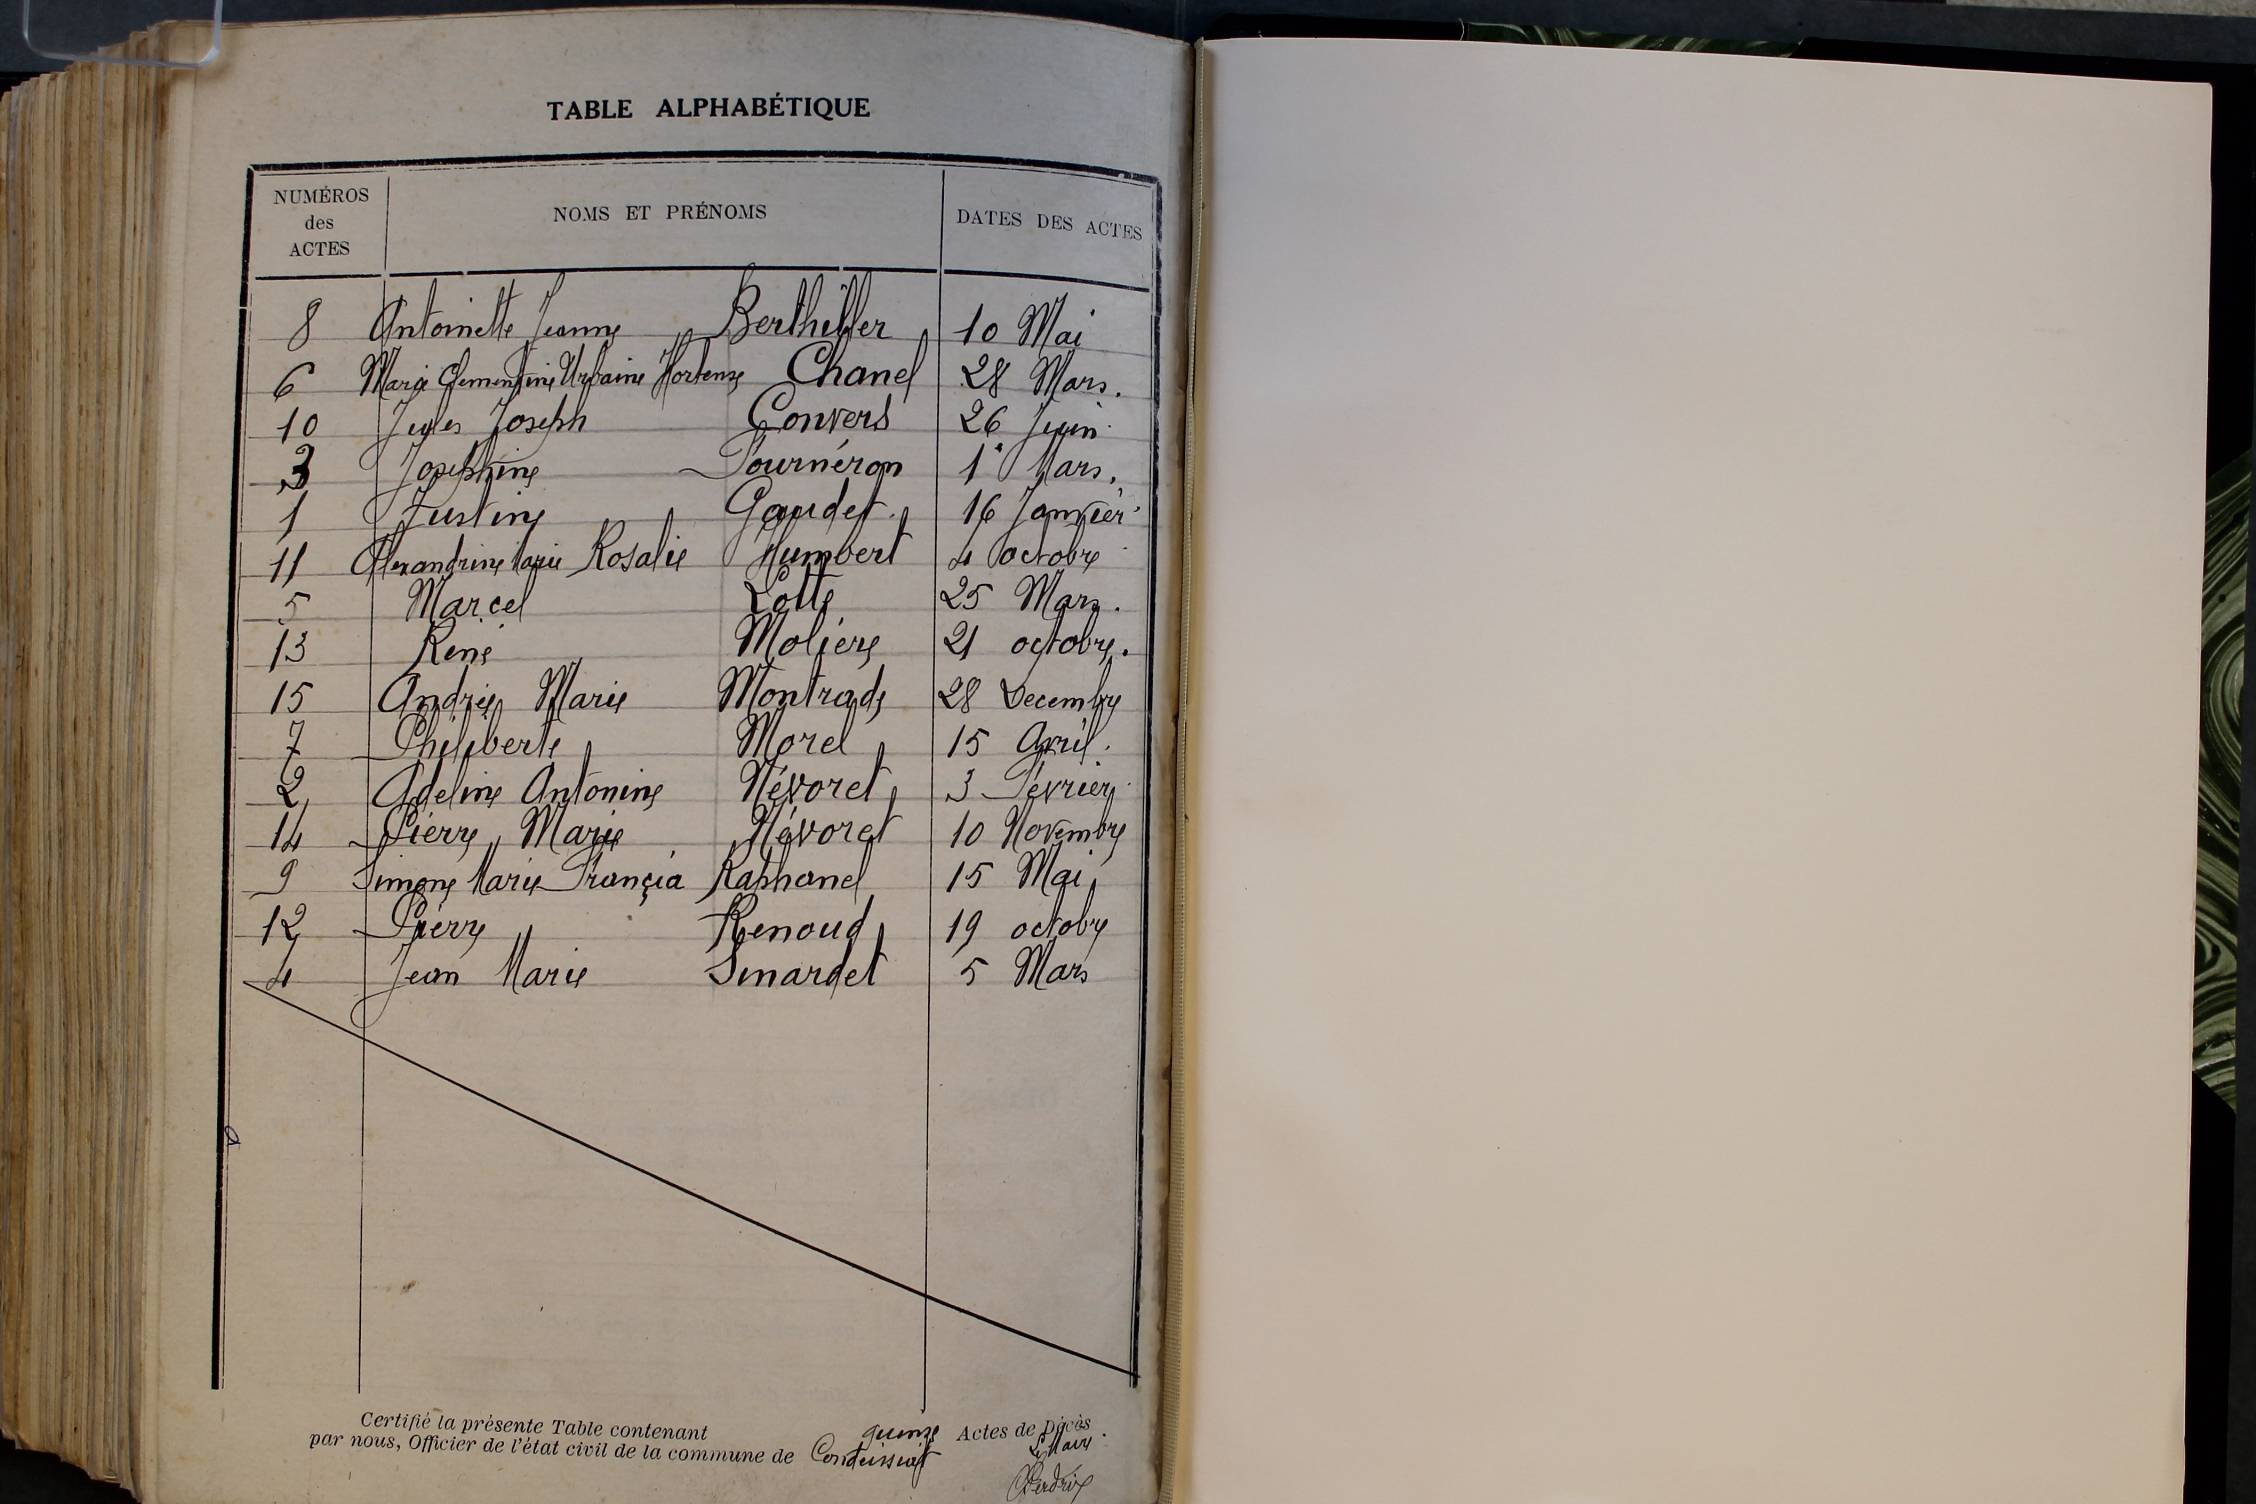 TABLE ALPHABÉTIQUE
NUMÉROS des ACTES NOMS ET PRÉNOMS DATES DES ACTES
8 Antoinette Jeanne Berthillier 10 Mai
6 Marie Clementine Urbaine Hortense Chanel 28 Mars.
10 Jules Joseph Convers 26 Juin
3 Josephine Fournéron 1er Mars.
1 Justine Gaudet 16 Janvier
11 Alexandrine Marie Rosalie Humbert 4 octobre
5 Marcel Lotte 25 Mars.
13 René Moliere 21 octobre.
15 Andrée Marie Montrade 28 Decembre
7 Philiberte Morel 15 Avril.
2 Adeline Antonine Névoret 3 Février
14 Pierre Marie Névoret 10 Novembre
9 Simone Marie Françia Raphanel 15 Mai
12 Pierre Renoud 19 octobre
4 Jean Marie Sinardet 5 Mars
Certifié la présente Table contenant quinze Actes de Décès
par nous, Officier de l'état civil de la commune de Condeissiat
Le Maire
Perdrix